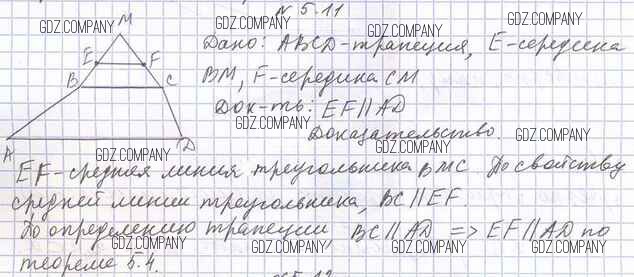 № 5.11
M
GDZ.COMPANY GDZ.COMPANY GDZ.COMPANY
Дано: ABCD-трапеция, E-середина
E F
GDZ.COMPANY
B C
BM, F-середина CM
GDZ.COMPANY
Док-ть: EF||AD
GDZ.COMPANY
Доказательство. GDZ.COMPANY
A D
GDZ.COMPANY GDZ.COMPANY
EF-средняя линия треугольника BMC. По свойству
GDZ.COMPANY
средней линии треугольника, BC||EF.
GDZ.COMPANY GDZ.COMPANY
По определению трапеции, BC||AD => EF||AD по
GDZ.COMPANY GDZ.COMPANY GDZ.COMPANY
теореме 5.4.